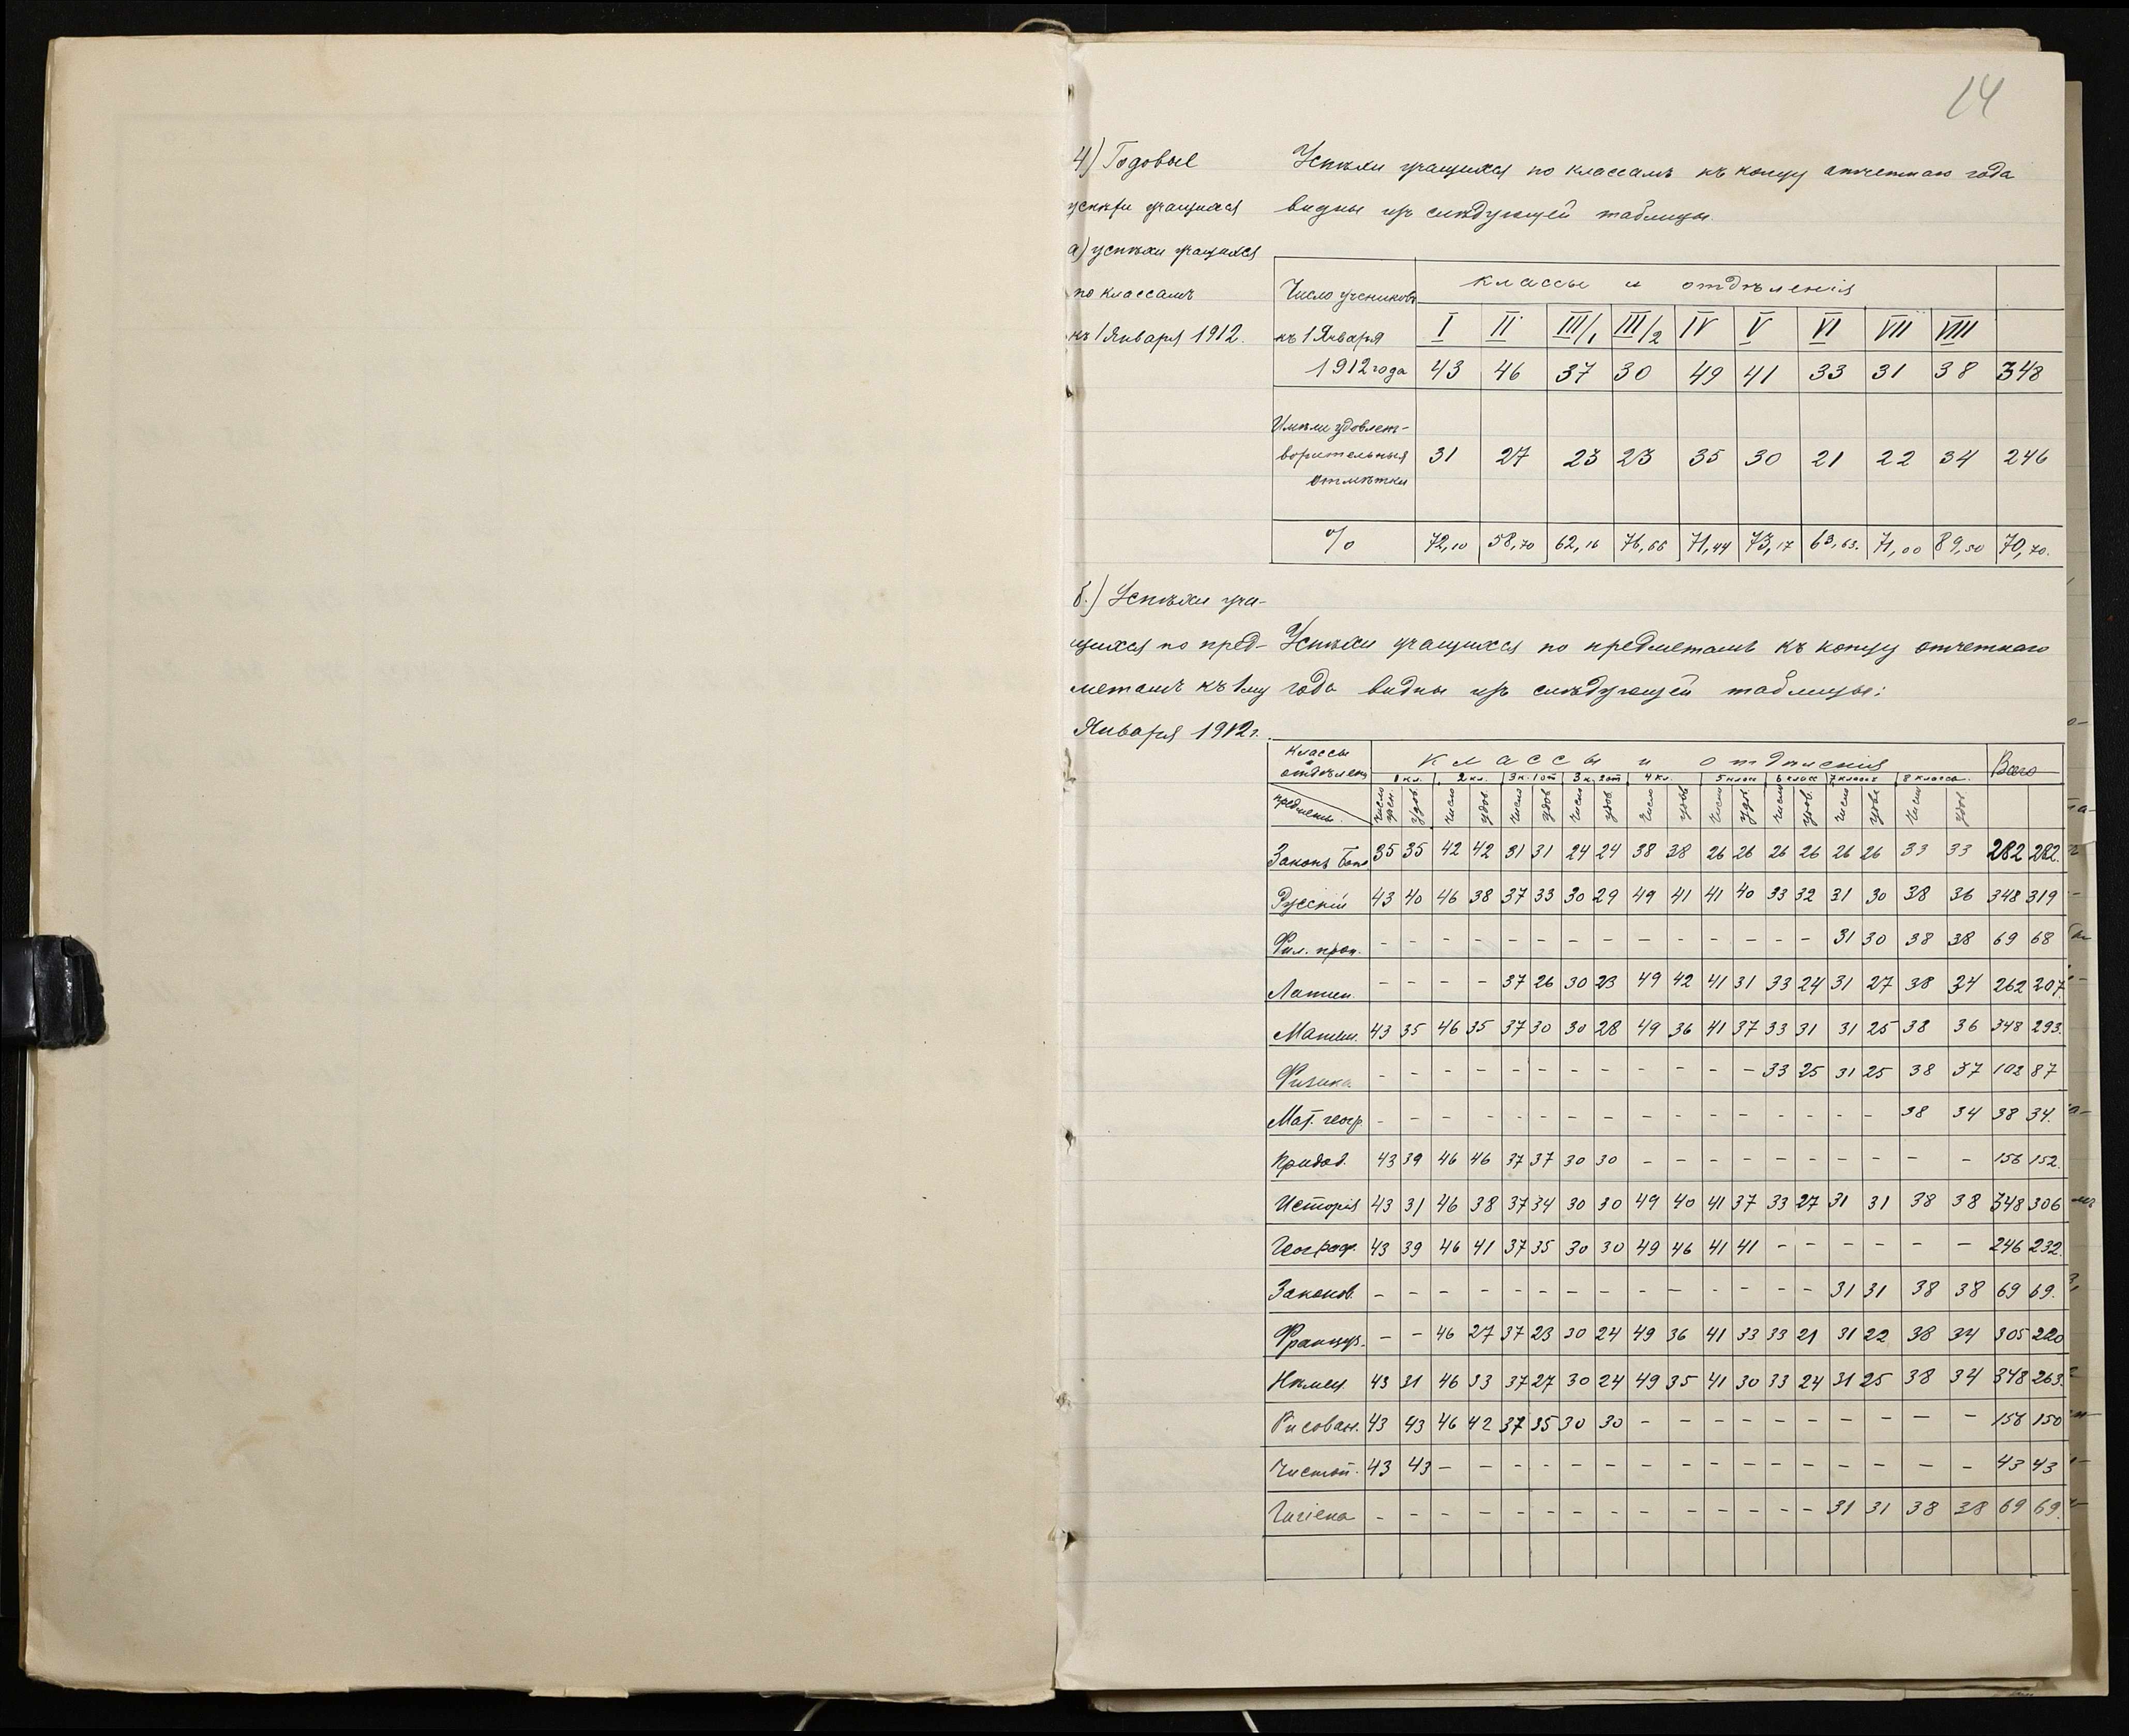 14
4) Годовые
успѣхи учащихся
а) успѣхи учащихся
по классамъ
къ 1 Января 1912.
Успѣхи учащихся по классамъ къ концу отчетнаго года
видны изъ слѣдующей таблицы
Число учениковъ къ 1 Января 1912 года
классы и отдѣленія
I II III/1 III/2 IV V VI VII VIII
43 46 37 30 49 41 33 31 38 348
Имѣли удовлет-
ворительныя 31 27 23 23 35 30 21 22 34 246
отмѣтки
% 72,10 58,70 62,16 76,66 71,44 73,17 63,63. 71,00 89,50 70,70.
б.) Успѣхи уча-
щихся по пред-
метамъ къ 1му
Января 1912 г.
Успѣхи учащихся по предметамъ къ концу отчетнаго
года видны изъ слѣдующей таблицы:
Классы и отдѣлен. Классы и отдѣленія Всего
1 кл. 2 кл. 3 к. 1 от 3 к. 2 от 4 кл. 5 класс 6 класс 7 классъ 8 класса.
предметы. число учен. удов. число удов. число удов. число удов. число удов. число удов. число удов. число удов. число удов.
Законъ Бож. 35 35 42 42 31 31 24 24 38 38 26 26 26 26 26 26 33 33 282 282.
Русскій 43 40 46 38 37 33 30 29 49 41 41 40 33 32 31 30 38 36 348 319
Фил. проп. - - - - - - - - - - - - - - 31 30 38 38 69 68
Латин. - - - - 37 26 30 23 49 42 41 31 33 24 31 27 38 34 262 207.
Матем. 43 35 46 35 37 30 30 28 49 36 41 37 33 31 31 25 38 36 348 293.
Физика - - - - - - - - - - - - 33 25 31 25 38 37 102 87
Мат. геогр. - - - - - - - - - - - - - - - - 38 34 38 34.
Природ. 43 39 46 46 37 37 30 30 - - - - - - - - - - 156 152.
Исторія 43 31 46 38 37 34 30 30 49 40 41 37 33 27 31 31 38 38 348 306
Географ. 43 39 46 41 37 35 30 30 49 46 41 41 - - - - - - 246 232.
Законов. - - - - - - - - - - - - - - 31 31 38 38 69 69.
Француз. - - 46 27 37 23 30 24 49 36 41 33 33 21 31 22 38 34 305 220
Нѣмец. 43 31 46 33 37 27 30 24 49 35 41 30 33 24 31 25 38 34 348 263.
Рисован. 43 43 46 42 37 35 30 30 - - - - - - - - - - 156 150
Чистоп. 43 43 - - - - - - - - - - - - - - - - 43 43
Гигіена - - - - - - - - - - - - - - 31 31 38 38 69 69.